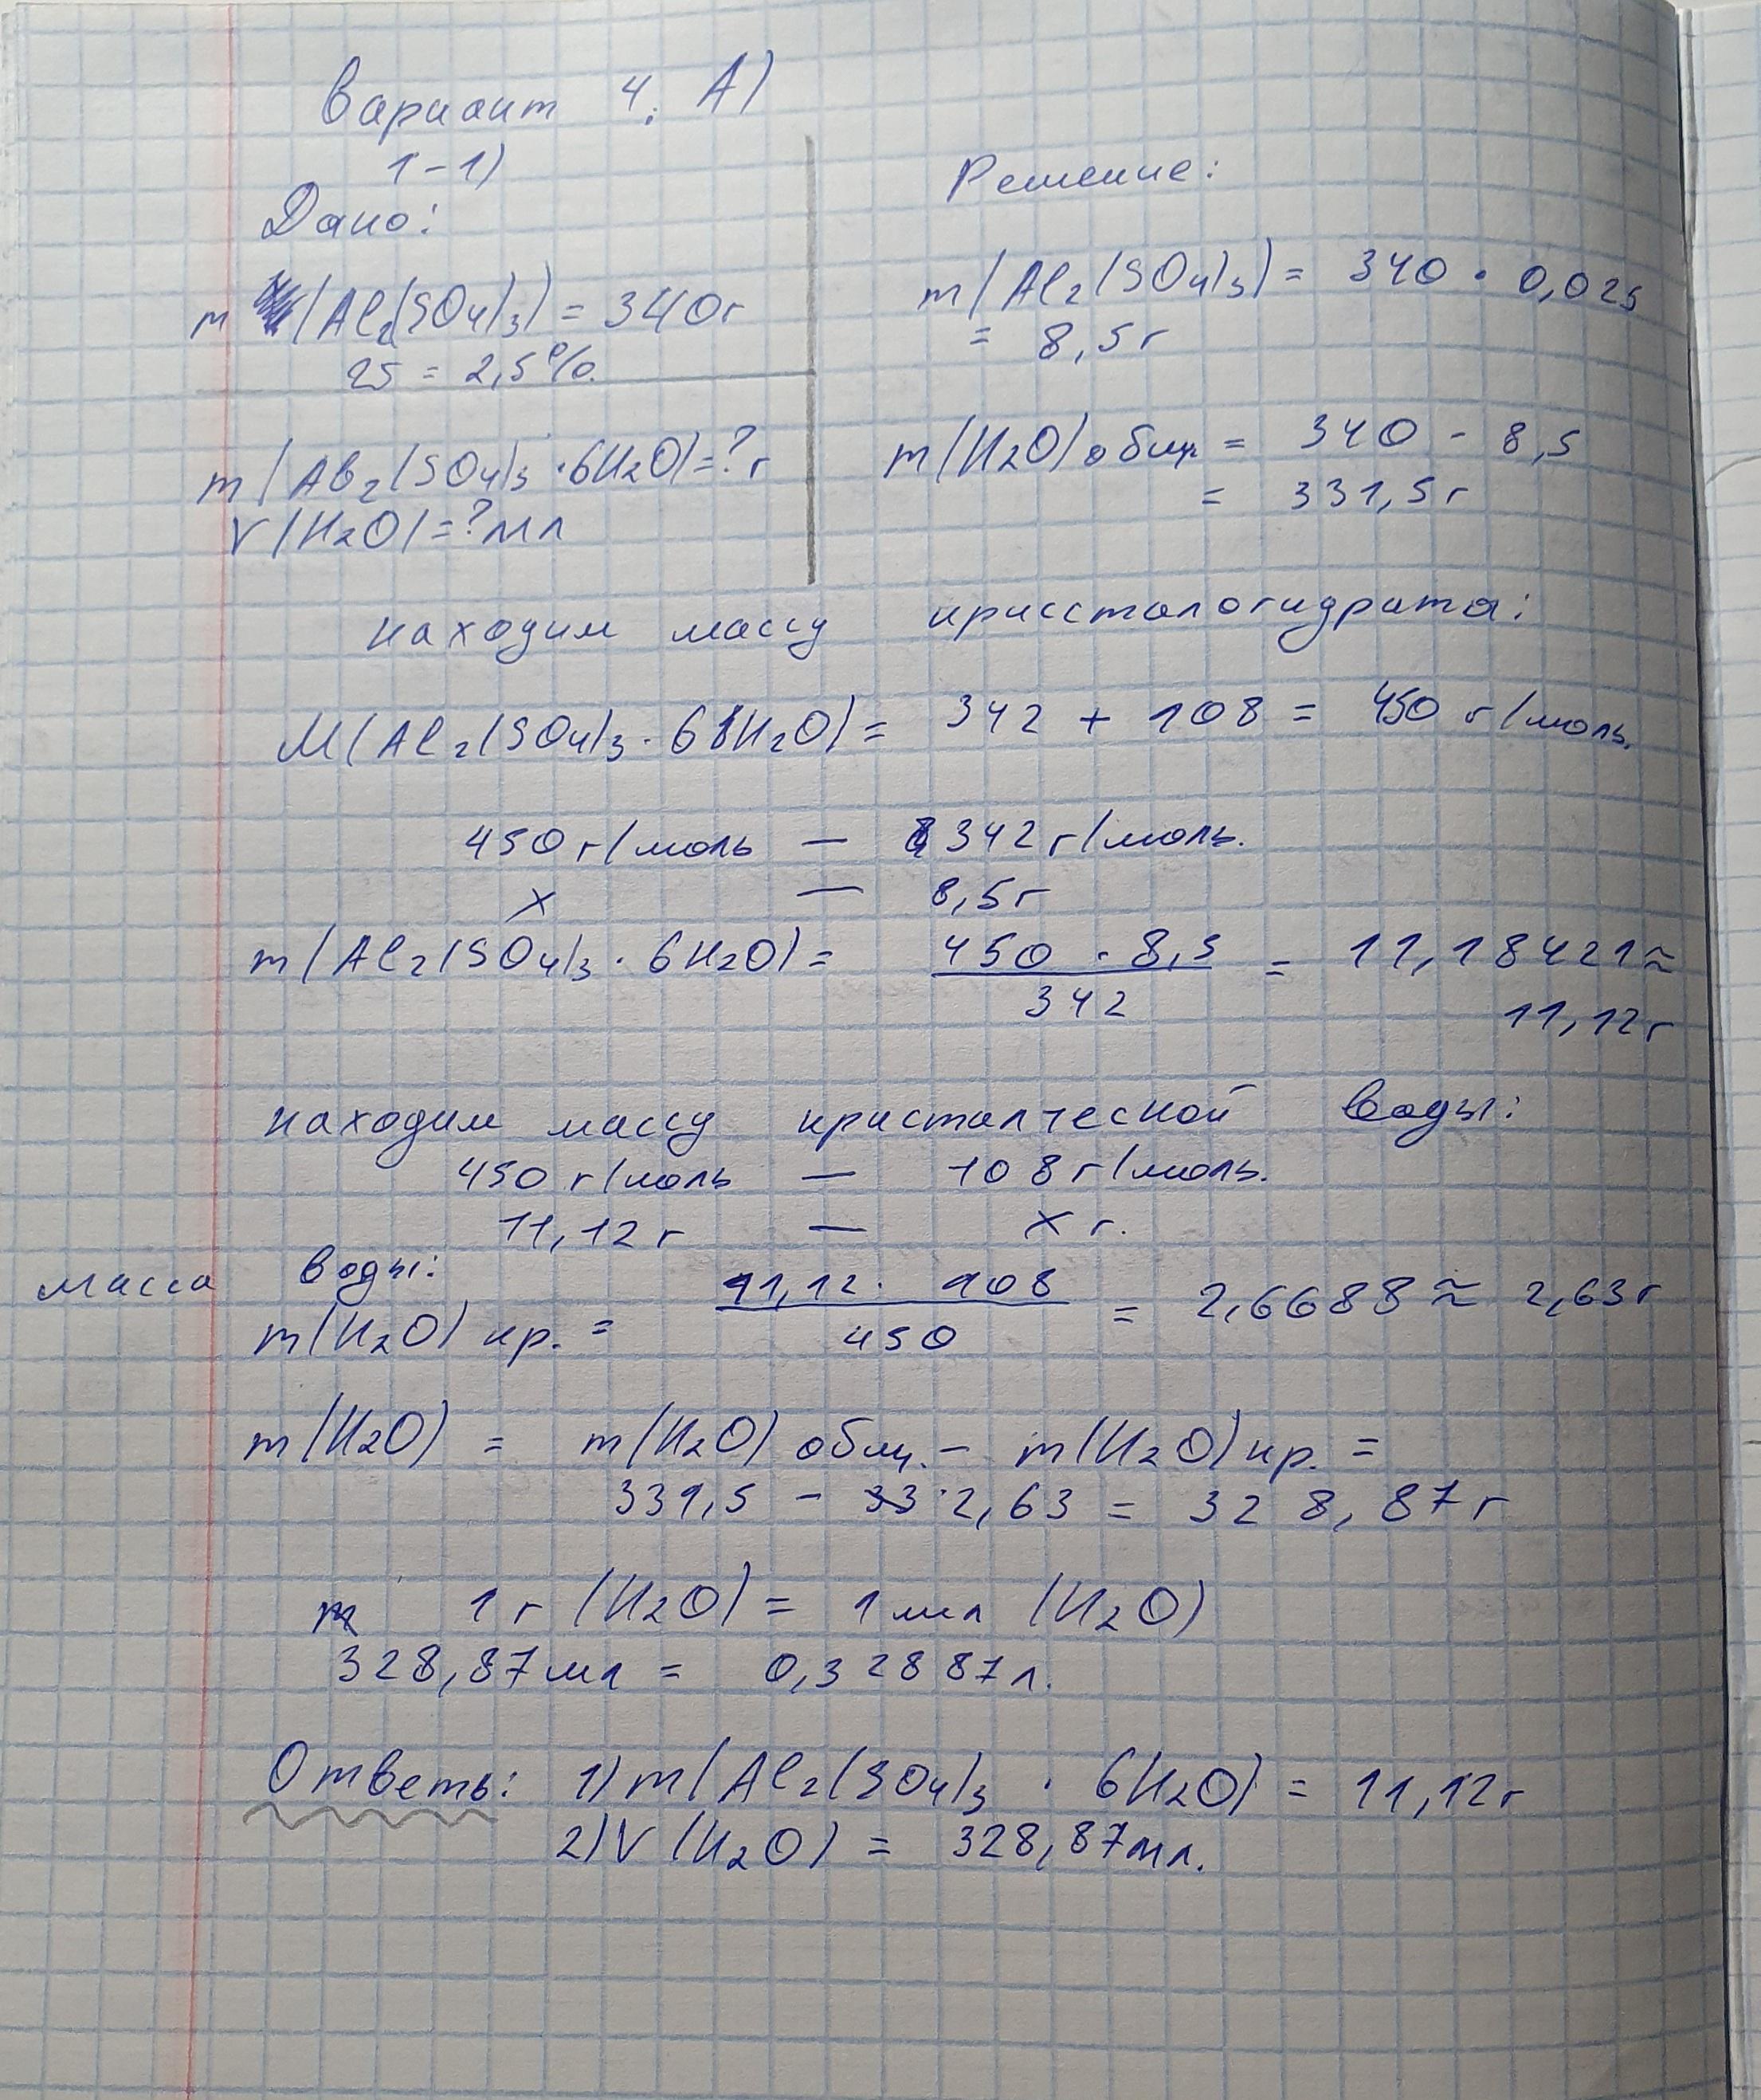 Вариант 4. А)
1-1)
Дано:
m (Al₂(SO₄)₃) = 340г
25 = 2,5%.
m (Al₂(SO₄)₃ · 6H₂O) = ? г
V (H₂O) = ? мл
Решение:
m (Al₂(SO₄)₃) = 340 · 0,025
= 8,5 г
m (H₂O) общ. = 340 - 8,5
= 331,5 г
находим массу криссталогидрата:
M (Al₂(SO₄)₃ · 6H₂O) = 342 + 108 = 450 г/моль.
450 г/моль — 342 г/моль.
x — 8,5 г
m (Al₂(SO₄)₃ · 6H₂O) = 450 · 8,5 / 342 = 11,18421 ≈
11,12 г
находим массу кристалческой воды:
450 г/моль — 108 г/моль.
11,12 г — x г.
масса воды:
m (H₂O) кр. = 11,12 · 108 / 450 = 2,6688 ≈ 2,63 г
m (H₂O) = m (H₂O) общ. - m (H₂O) кр. =
331,5 - 2,63 = 328,87 г
1 г (H₂O) = 1 мл (H₂O)
328,87 мл = 0,32887 л.
Ответь: 1) m (Al₂(SO₄)₃ · 6H₂O) = 11,12 г
2) V (H₂O) = 328,87 мл.